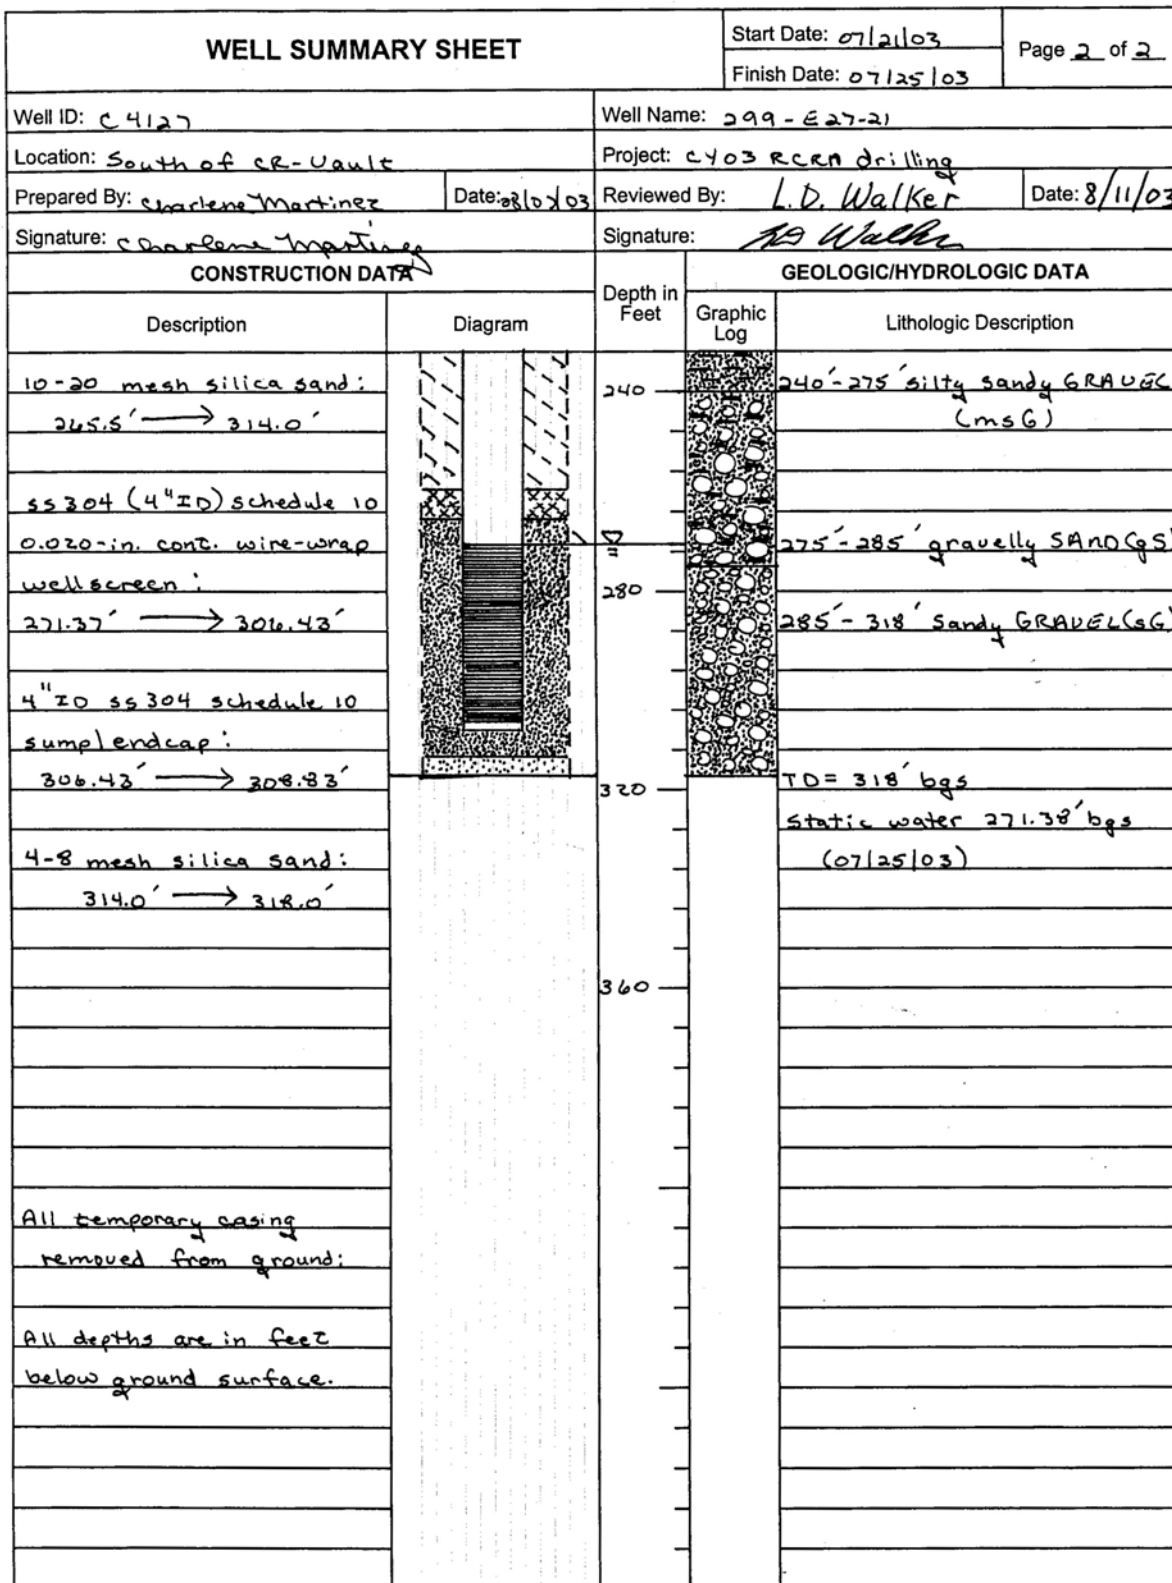 WELL SUMMARY SHEET
Start Date: 07/21/03
Page 2 of 2
Finish Date: 07/25/03
Well ID: C4127
Well Name: 299-E27-21
Location: South of CR-Vault
Project: CY03 RCRA drilling
Prepared By: Charlene Martinez
Date: 08/07/03
Reviewed By: L.D. Walker
Date: 8/11/03
Signature: Charlene Martinez
Signature: LD Walker
CONSTRUCTION DATA
Depth in Feet
GEOLOGIC/HYDROLOGIC DATA
Description
Diagram
Graphic Log
Lithologic Description
10-20 mesh silica sand:
265.5' → 314.0'
ss304 (4"ID) schedule 10
0.020-in. cont. wire-wrap
wellscreen:
271.37' → 306.43'
4"ID ss304 schedule 10
sump/endcap:
306.43' → 308.83'
4-8 mesh silica sand:
314.0' → 318.0'
All temporary casing
removed from ground:
All depths are in feet
below ground surface.
240
280
320
360
240'-275' silty sandy GRAVEL
(msG)
275'-285' gravelly SAND(gS)
285'-318' Sandy GRAVEL(sG)
TD= 318' bgs
Static water 271.38' bgs
(07/25/03)